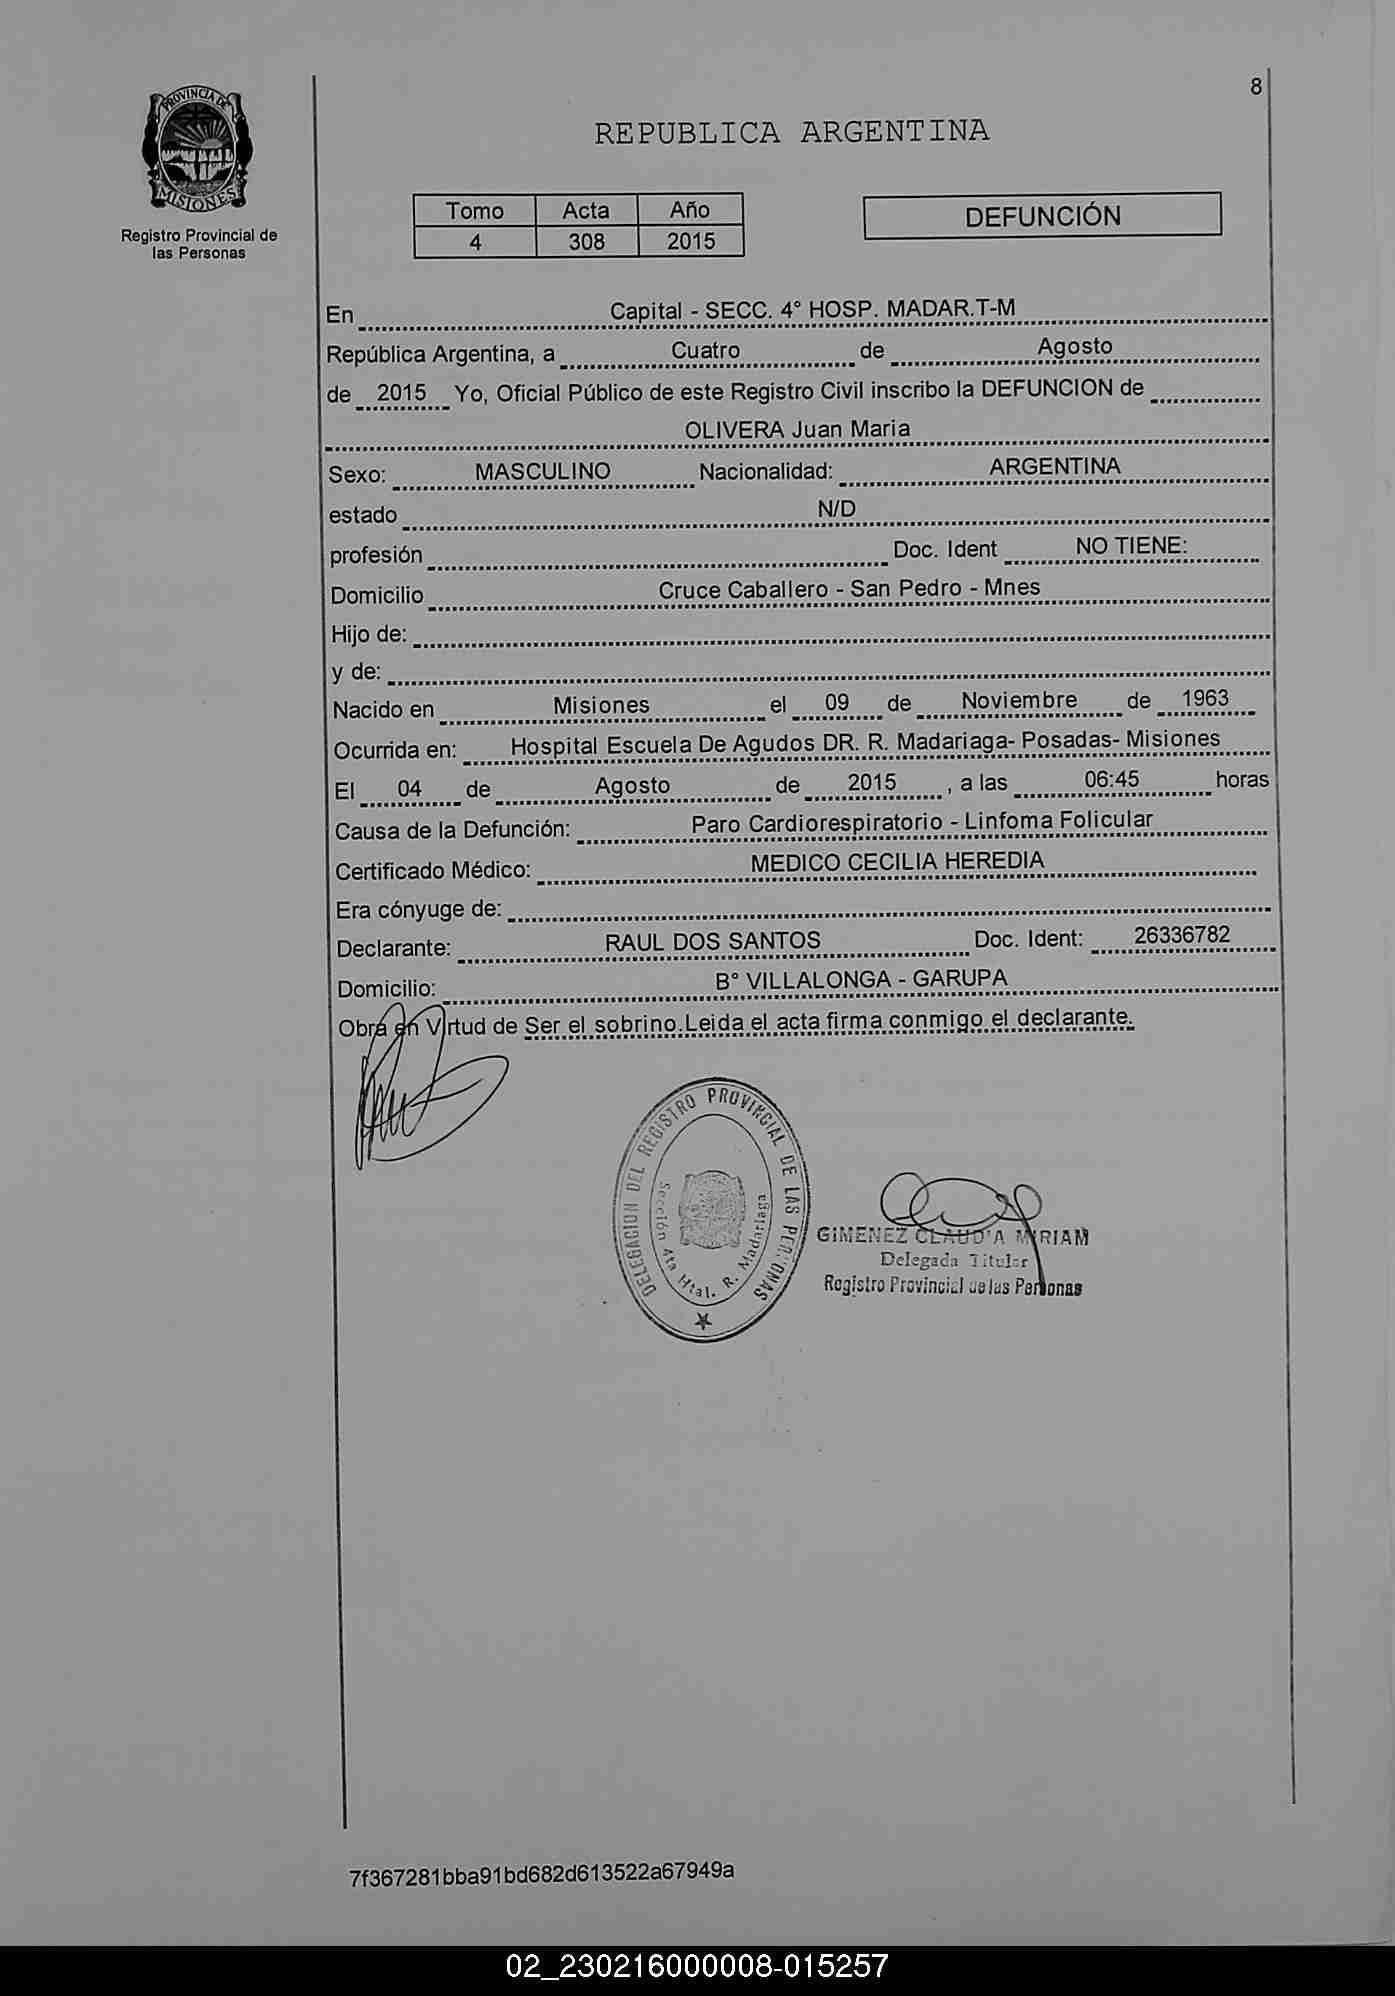 8
PROVINCIA DE
MISIONES
Registro Provincial de
las Personas
REPUBLICA ARGENTINA
Tomo Acta Año
4 308 2015
DEFUNCIÓN
En Capital - SECC. 4° HOSP. MADAR.T-M
República Argentina, a Cuatro de Agosto
de 2015 Yo, Oficial Público de este Registro Civil inscribo la DEFUNCION de
OLIVERA Juan Maria
Sexo: MASCULINO Nacionalidad: ARGENTINA
estado N/D
profesión Doc. Ident NO TIENE:
Domicilio Cruce Caballero - San Pedro - Mnes
Hijo de:
y de:
Nacido en Misiones el 09 de Noviembre de 1963
Ocurrida en: Hospital Escuela De Agudos DR. R. Madariaga- Posadas- Misiones
El 04 de Agosto de 2015 , a las 06:45 horas
Causa de la Defunción: Paro Cardiorespiratorio - Linfoma Folicular
Certificado Médico: MEDICO CECILIA HEREDIA
Era cónyuge de:
Declarante: RAUL DOS SANTOS Doc. Ident: 26336782
Domicilio: B° VILLALONGA - GARUPA
Obra en Virtud de Ser el sobrino.Leida el acta firma conmigo el declarante.
DELEGACION DEL REGISTRO PROVINCIAL DE LAS PERSONAS
Sección 4ta Htal. R. Madariaga
GIMENEZ CLAUDIA MIRIAM
Delegada Titular
Registro Provincial de las Personas
7f367281bba91bd682d613522a67949a
02_230216000008-015257